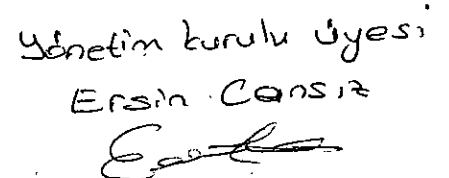 Yönetim kurulu üyesi
Ersin Cansız